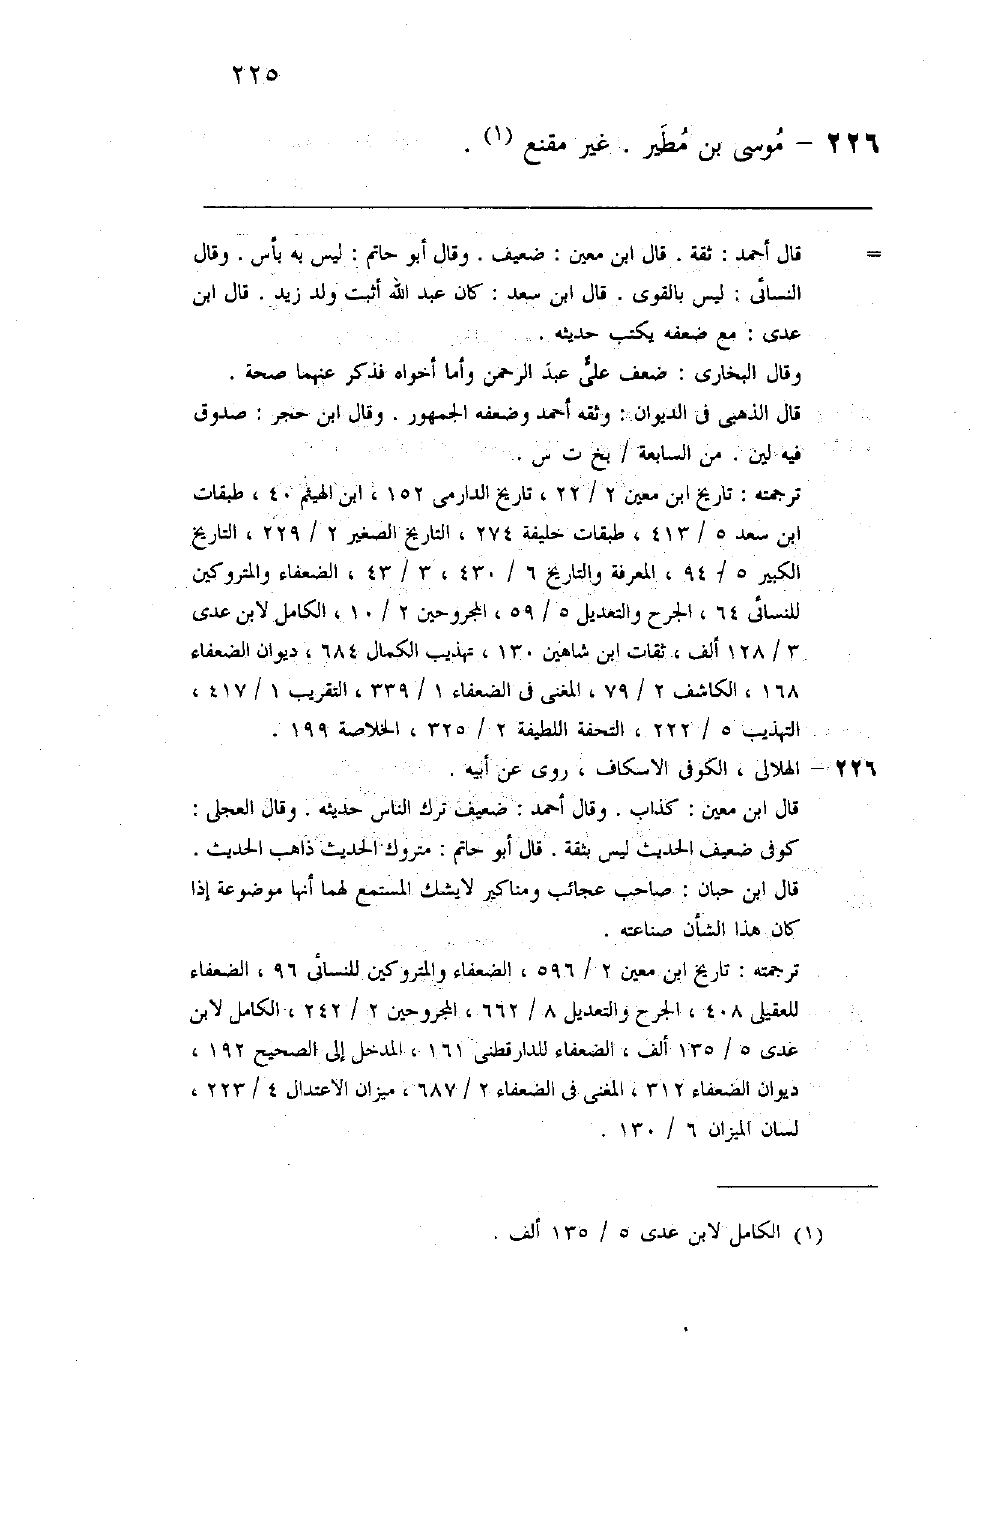 ٢٢٥
٢٢٦ – مُوسى بن مُطَير . غير مقنع (١) .
= قال أحمد : ثقة . قال ابن معين : ضعيف . وقال أبو حاتم : ليس به بأس . وقال
النسائى : ليس بالقوى . قال ابن سعد : كان عبد الله أثبت ولد زيد . قال ابن
عدى : مع ضعفه يكتب حديثه .
وقال البخارى : ضعف علىُّ عبدَ الرحمن وأما أخواه فذكر عنهما صحة .
قال الذهبى فى الديوان : وثقه أحمد وضعفه الجمهور . وقال ابن حجر : صدوق
فيه لين . من السابعة / بخ ت س .
ترجمته : تاريخ ابن معين ٢ / ٢٢ ، تاريخ الدارمى ١٥٢ ، ابن الهيثم ٤٠ ، طبقات
ابن سعد ٥ / ٤١٣ ، طبقات خليفة ٢٧٤ ، التاريخ الصغير ٢ / ٢٢٩ ، التاريخ
الكبير ٥ / ٩٤ ، المعرفة والتاريخ ٦ / ٤٣٠ ، ٣ / ٤٣ ، الضعفاء والمتروكين
للنسائى ٦٤ ، الجرح والتعديل ٥ / ٥٩ ، المجروحين ٢ / ١٠ ، الكامل لابن عدى
٣ / ١٢٨ ألف ، ثقات ابن شاهين ١٣٠ ، تهذيب الكمال ٦٨٤ ، ديوان الضعفاء
١٦٨ ، الكاشف ٢ / ٧٩ ، المغنى فى الضعفاء ١ / ٣٣٩ ، التقريب ١ / ٤١٧ ،
التهذيب ٥ / ٢٢٢ ، التحفة اللطيفة ٢ / ٣٢٥ ، الخلاصة ١٩٩ .
٢٢٦ – الهلالى ، الكوفى الاسكاف ، روى عن أبيه .
قال ابن معين : كذاب . وقال أحمد : ضعيف ترك الناس حديثه . وقال العجلى :
كوفى ضعيف الحديث ليس بثقة . قال أبو حاتم : متروك الحديث ذاهب الحديث .
قال ابن حبان : صاحب عجائب ومناكير لايشك المستمع لهما أنها موضوعة إذا
كان هذا الشأن صناعته .
ترجمته : تاريخ ابن معين ٢ / ٥٩٦ ، الضعفاء والمتروكين للنسائى ٩٦ ، الضعفاء
للعقيلى ٤٠٨ ، الجرح والتعديل ٨ / ٦٦٢ ، المجروحين ٢ / ٢٤٢ ، الكامل لابن
عدى ٥ / ١٣٥ ألف ، الضعفاء للدارقطنى ١٦١ ، المدخل إلى الصحيح ١٩٢ ،
ديوان الضعفاء ٣١٢ ، المغنى فى الضعفاء ٢ / ٦٨٧ ، ميزان الاعتدال ٤ / ٢٢٣ ،
لسان الميزان ٦ / ١٣٠ .
(١) الكامل لابن عدى ٥ / ١٣٥ ألف .